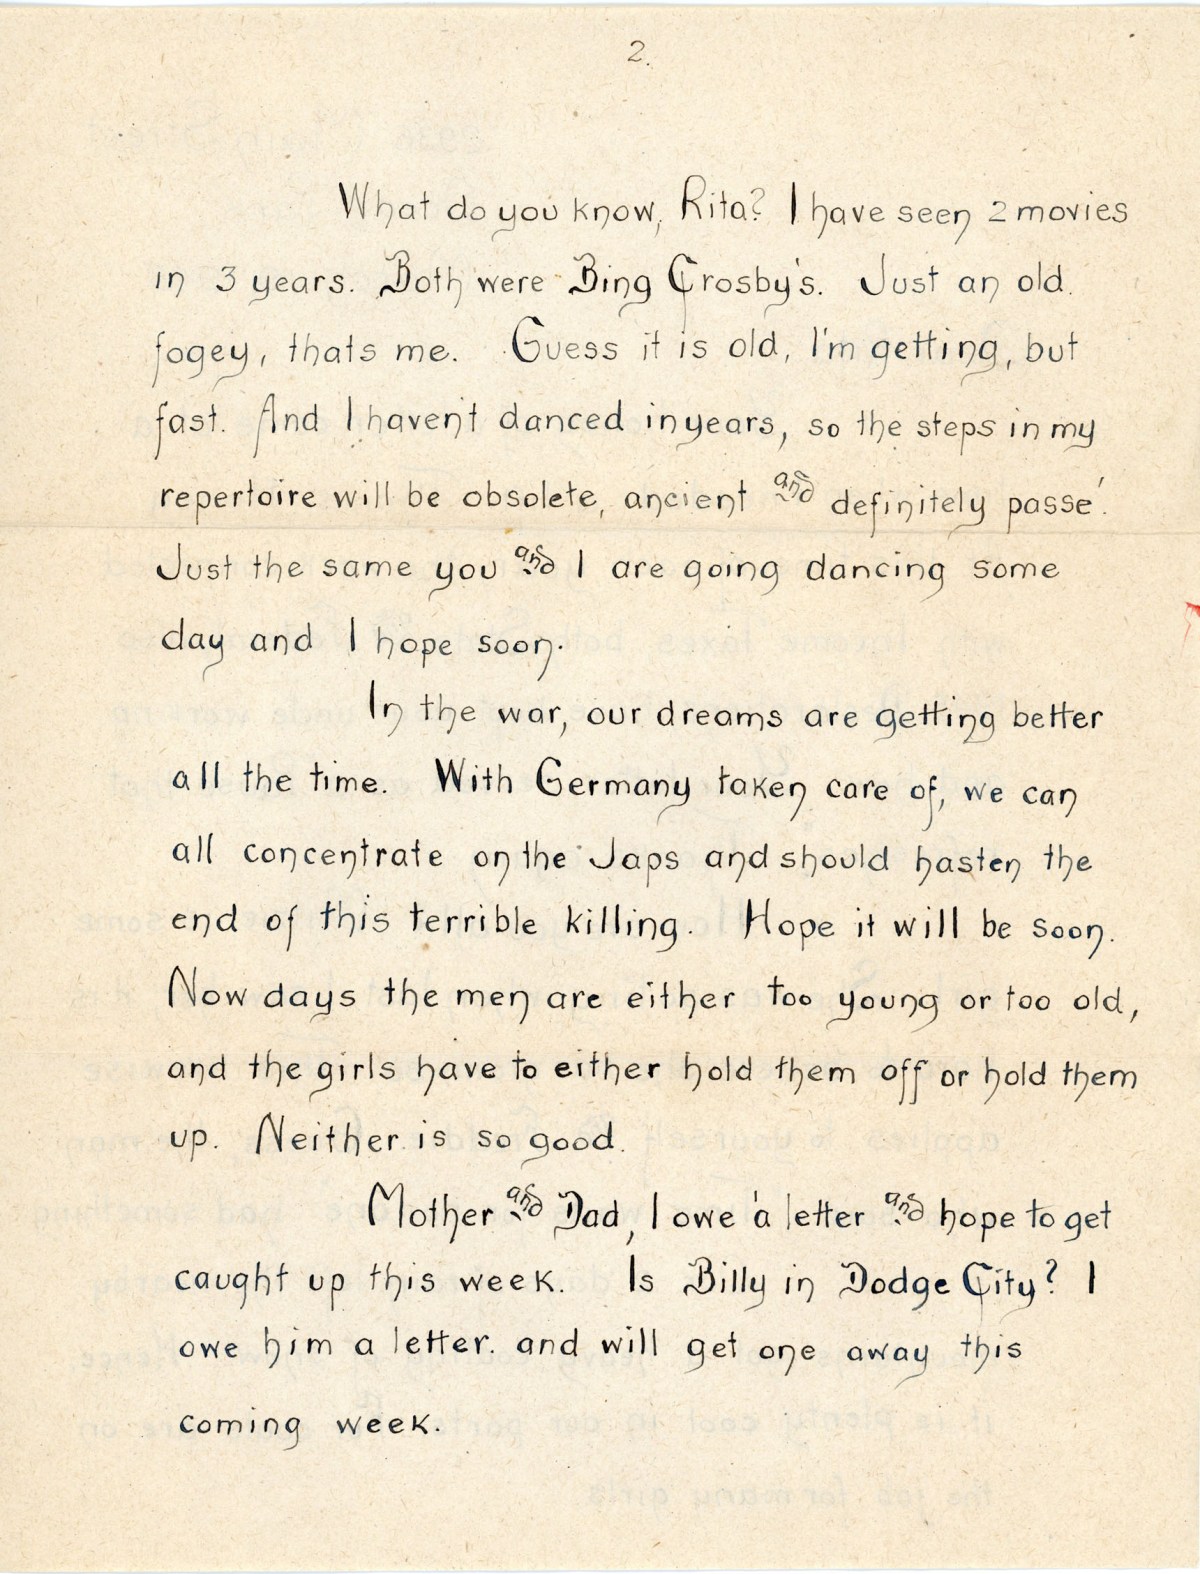 2.
What do you know, Rita? I have seen 2 movies
in 3 years. Both were Bing Crosby's. Just an old
fogey, thats me. Guess it is old, I'm getting, but
fast. And I haven't danced in years, so the steps in my
repertoire will be obsolete, ancient and definitely passe'.
Just the same you and I are going dancing some
day and I hope soon.
In the war, our dreams are getting better
all the time. With Germany taken care of, we can
all concentrate on the Japs and should hasten the
end of this terrible killing. Hope it will be soon.
Now days the men are either too young or too old,
and the girls have to either hold them off or hold them
up. Neither is so good.
Mother and Dad, I owe a letter and hope to get
caught up this week. Is Billy in Dodge City? I
owe him a letter. and will get one away this
coming week.